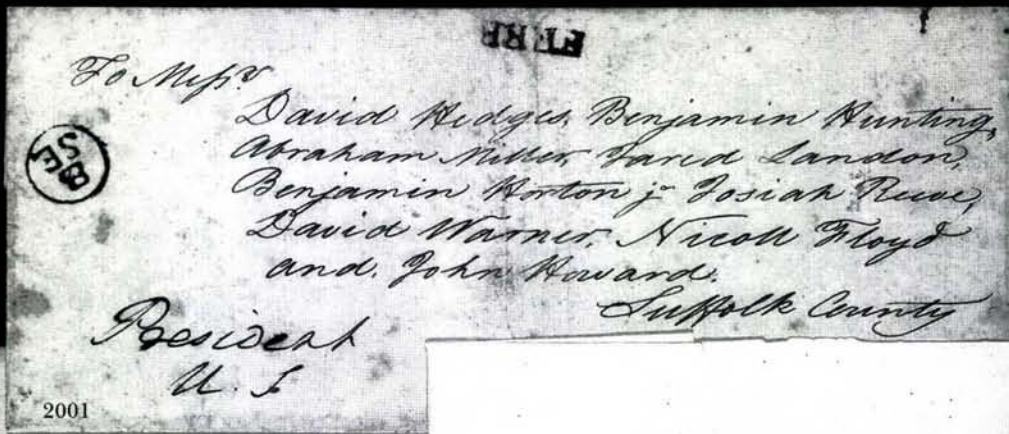 FREE
To Messrs
David Hedges, Benjamin Hunting,
Abraham Miller, Jared Landon,
Benjamin Horton jr Josiah Reeve,
David Warner, Nicoll Floyd
and, John Howard.
Suffolk County
8
SE
President
U. S
2001